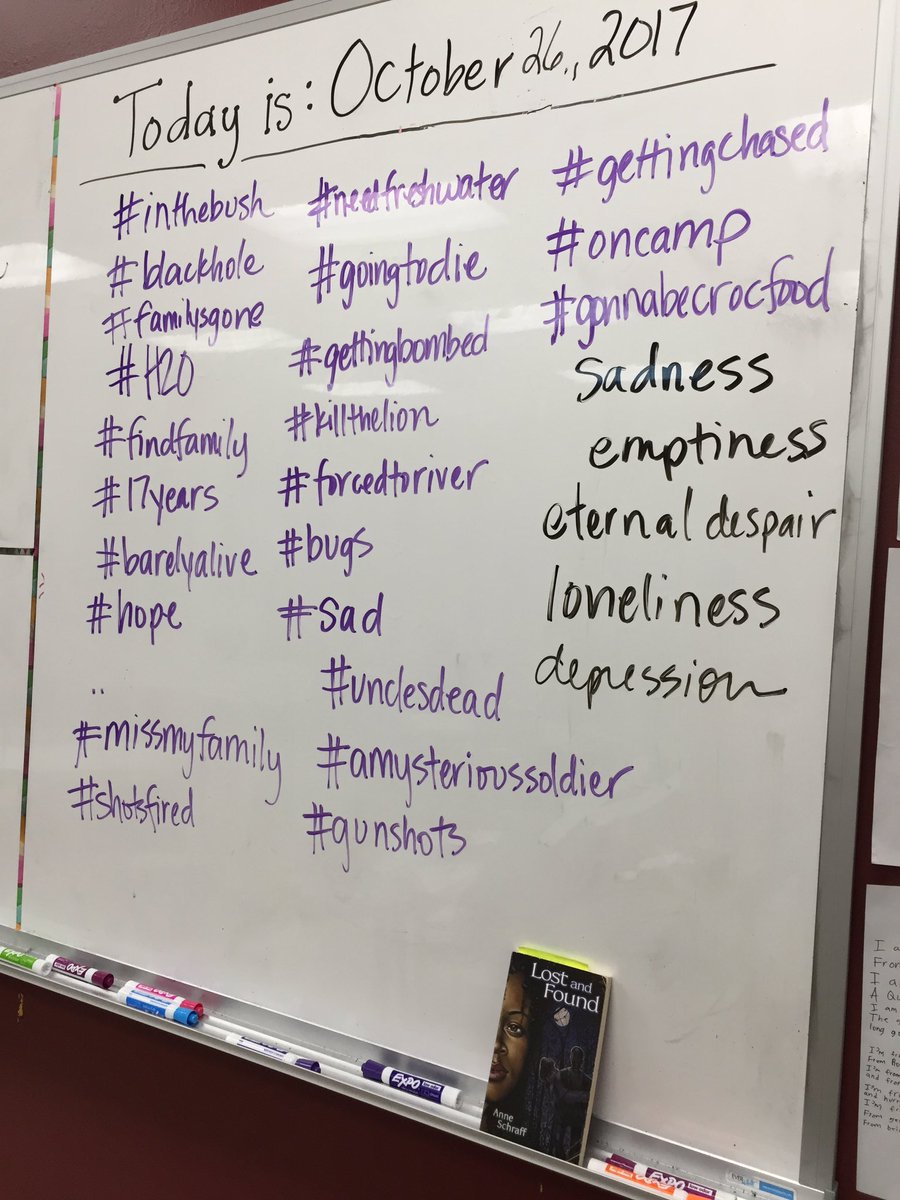 Today is: October 26., 2017
#inthebush
#blackhole
#familysgone
#H20
#findfamily
#17years
#barelyalive
#hope
#missmyfamily
#shotsfired
#needfreshwater
#goingtodie
#gettingbombed
#killthelion
#forcedtoriver
#bugs
#sad
#unclesdead
#amysterioussoldier
#gunshots
#gettingchased
#oncamp
#gonnabecrocfood
sadness
emptiness
eternal despair
loneliness
depression
Lost and
Found
Anne
Schraff
EXPO
EXPO
EXPO
EXPO
I a
From
I a
A Qu
I am
The
long g
I'm fr
From
I'm from
and fro
I'm fr
and
I'm fr
From
From